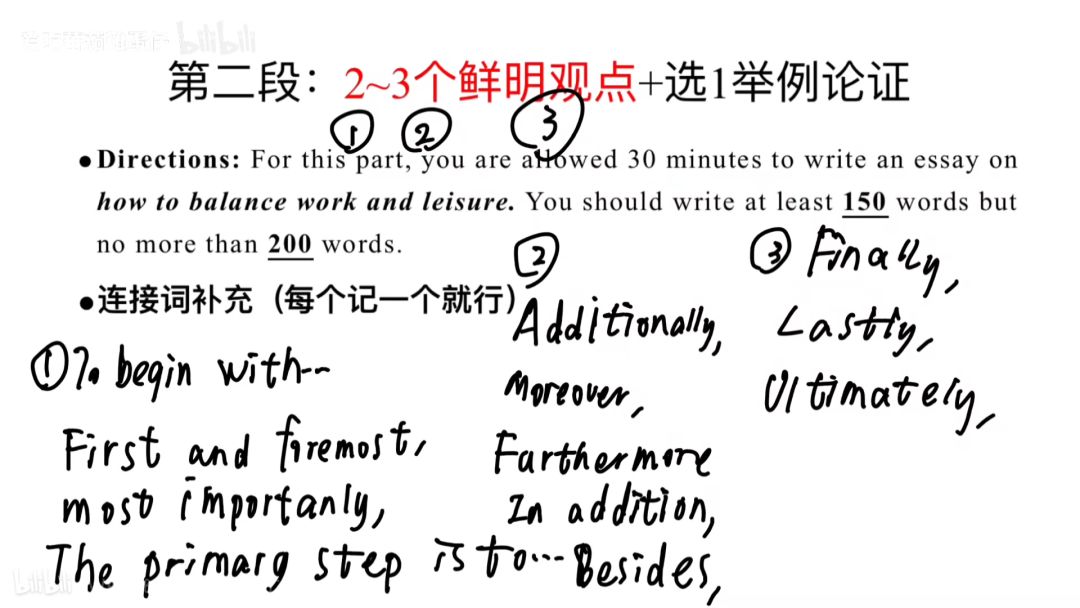 bilibili
第二段：2~3个鲜明观点+选1举例论证
① ② ③
●Directions: For this part, you are allowed 30 minutes to write an essay on
how to balance work and leisure. You should write at least 150 words but
no more than 200 words.
●连接词补充（每个记一个就行）
①To begin with...
First and foremost,
most importanly,
The primary step is to...
②
Additionally,
Moreover,
Furthermore
In addition,
Besides,
③ Finally,
Lastly,
Ultimately,
bilibili